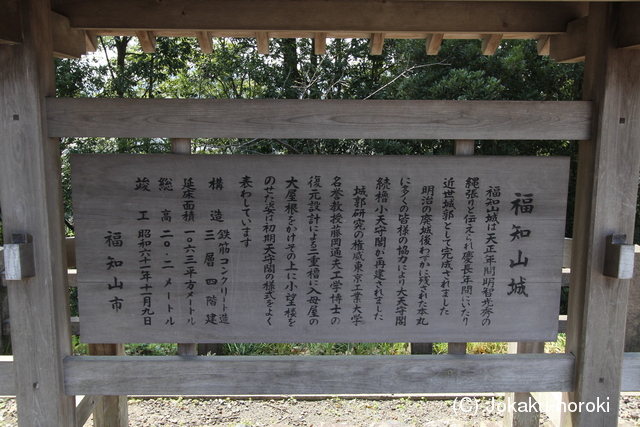 福知山城
福知山城は天正年間明智光秀の
縄張りと伝えられ慶長年間にいたり
近世城郭として完成されました
明治の廃城後わずかに残された本丸
に多くの皆様の協力により大天守閣
続櫓小天守閣が再建されました
城郭研究の権威東京工業大学
名誉教授藤岡通夫工学博士の
復元設計による二重櫓に入母屋の
大屋根をかけその上に小望楼を
のせた姿は初期天守閣の様式をよく
表わしています
構造 鉄筋コンクリート造
三層四階建
延床面積 一〇六三平方メートル
総高 二〇.二メートル
竣工 昭和六十一年十一月九日
福知山市
(C) Jokakuhoroki